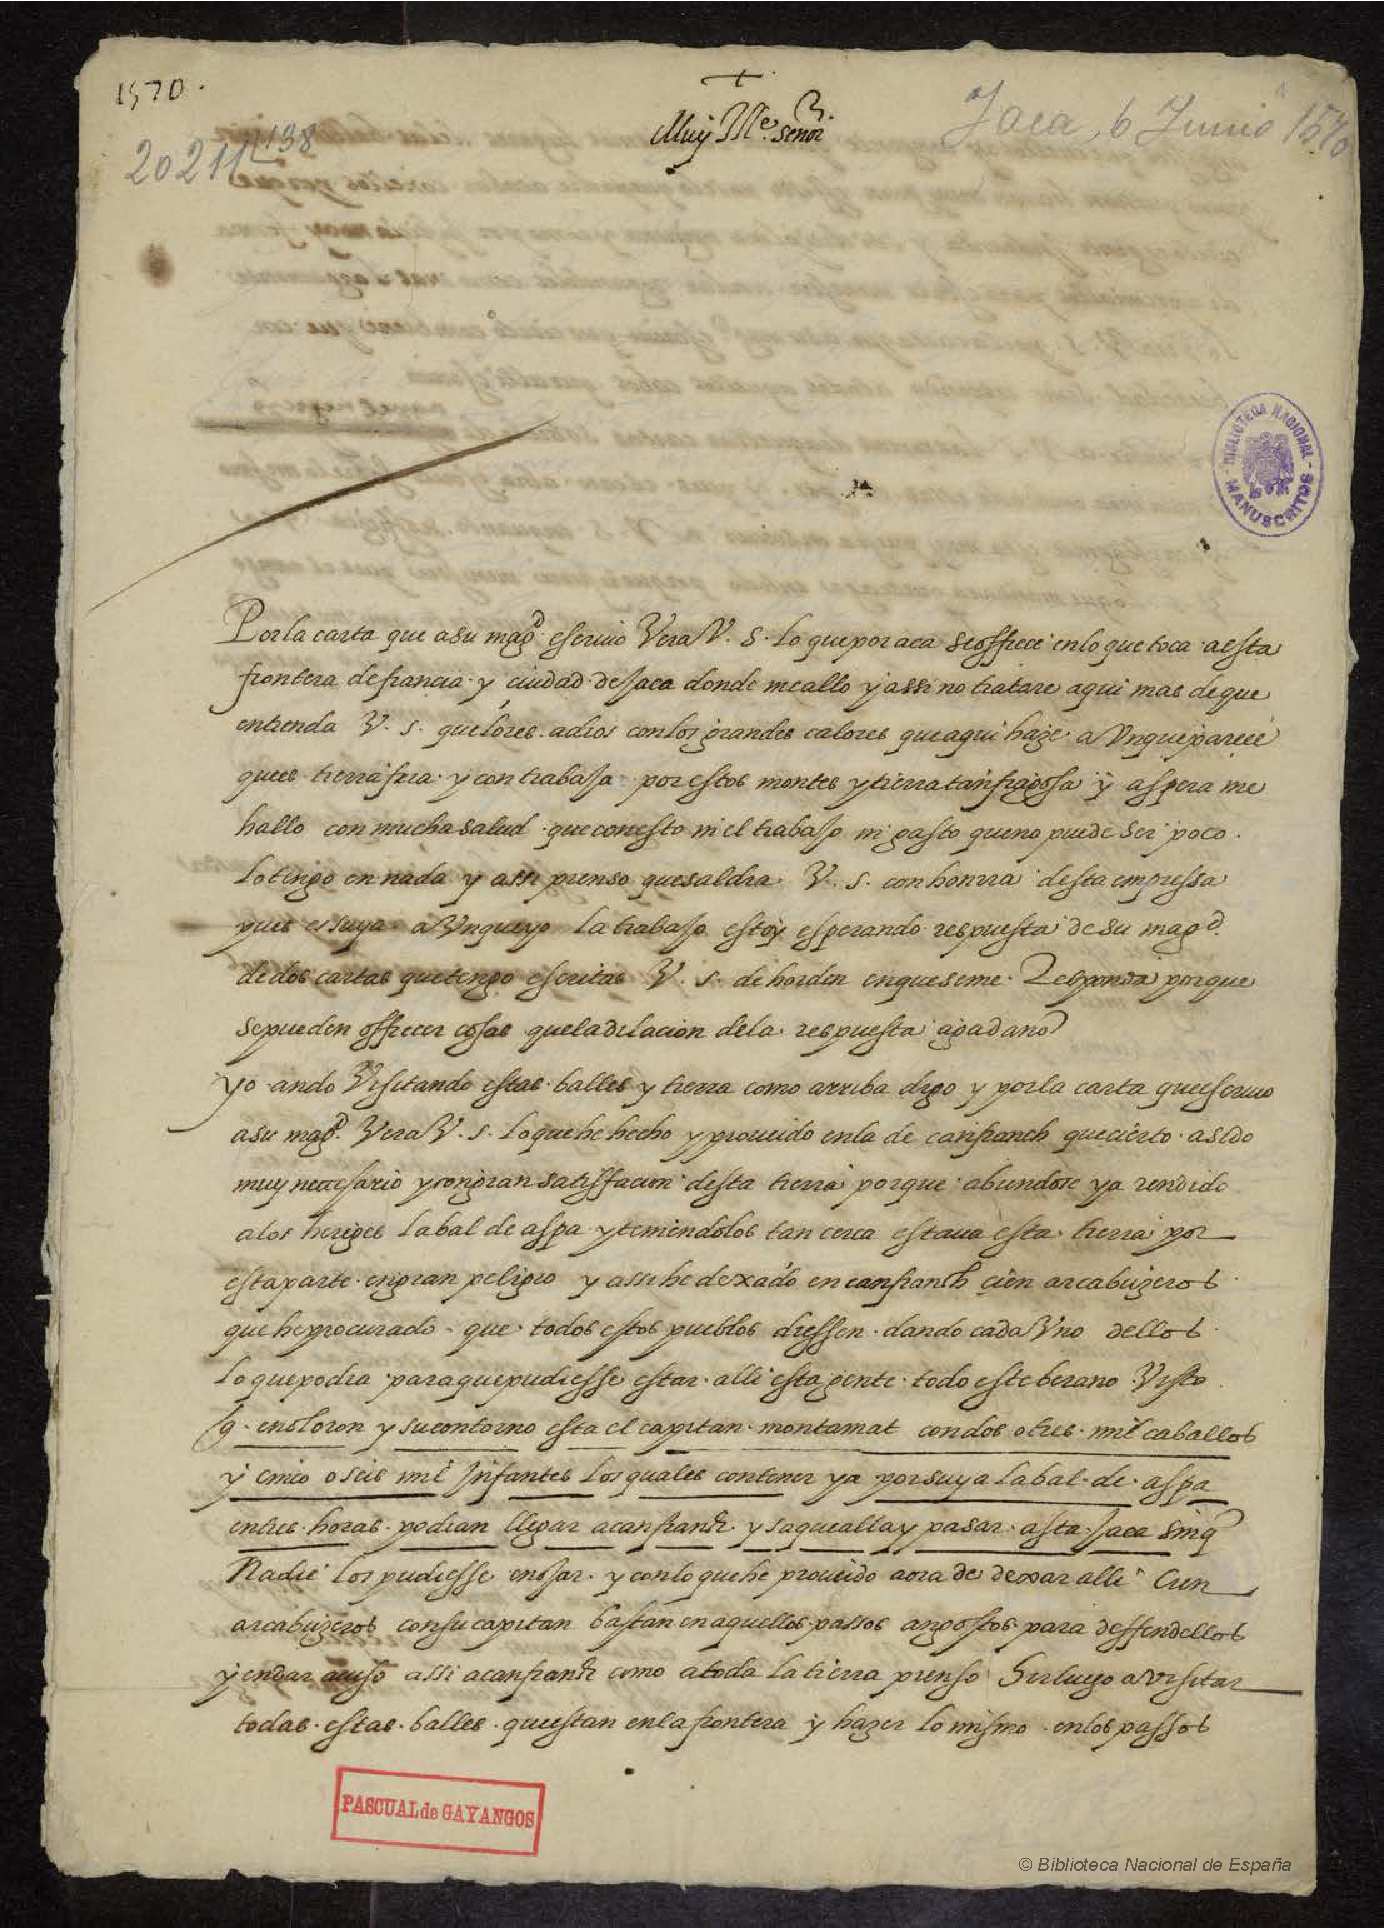 1570.
20211/138
Jaca, 6 Junio 1570
+
Muy Ille. señor
Por la carta que a su magd. escriuio Vera V. S. lo que por aca se offrece en lo que toca a esta
frontera de francia y ciudad de Jaca donde me allo y assi no tratare aqui mas de que
entienda V. S. que lores a dios con los grandes calores que aqui haze aVnque parece
ques tierra fria y con trabajo por estos montes y tierra tan fragossa y aspera me
hallo con mucha salud que con esto ni el trabajo ni gasto que no puede ser poco
lo tengo en nada y assi pienso que saldra V. S. con honrra desta empressa
pues es suya aVnque yo la trabajo estoy esperando respuesta de su magd.
de dos cartas que tengo escritas V. S. de horden en que se me Responda porque
se pueden offrecer cosas que la dilacion de la respuesta aga daño
yo ando Visitando estas balles y tierra como arriba digo y por la carta que escriuo
a su magd. Vera V. S. lo que he hecho y proueido en la de canfranch que cierto a sido
muy necesario y con gran satisffacion desta tierra porque abiendose ya rendido
a los hereges la bal de aspa y teniendolos tan cerca estaua esta tierra por
esta parte en gran peligro y assi he dexado en canfranch cien arcabuzeros
que he procurado que todos estos pueblos diessen dando cada Vno dellos
lo que podia para que pudiesse estar alli esta gente todo este berano Visto
q. en oloron y su contorno esta el capitan montamat con dos o tres mil caballos
y cinco o seis mil Jnfantes los quales con tener ya por suya la bal de aspa
en tres horas podian llegar a canfranch y saquealla y pasar asta Jaca sin q
Nadie los pudiesse enojar y con lo que he proueido aora de dexar alli Cien
arcabuzeros con su capitan bastan en aquellos passos angostos para deffendellos
y en dar auiso assi a canfranch como a toda la tierra pienso Jr luego a visitar
todas estas balles questan en la frontera y hazer lo mismo en los passos
BIBLIOTECA NACIONAL
MANUSCRITOS
PASCUAL de GAYANGOS
© Biblioteca Nacional de España